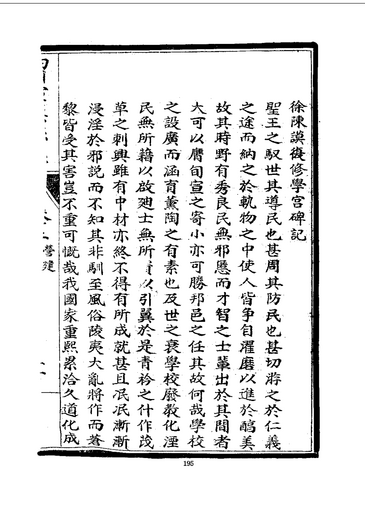 徐陳謨復修學宮碑記
聖王之馭世其導民也甚周其防民也甚切游之於仁義
之途而納之於軌物之中使人皆爭自濯磨以進於醇美
故其時野有秀良民無邪慝而才智之士輩出於其間者
大可以膺旬宣之寄小亦可勝邦邑之任其故何哉學校
之設廣而涵育薰陶之有素也及世之衰學校廢教化湮
民無所藉以啟迪士無所以引翼於是青衿之什作茂
草之刺興雖有中材亦終不得有所成就甚且氓氓漸漸
浸淫於邪說而不知其非馴至風俗陵夷大亂將作而蒼
黎皆受其害豈不重可慨哉我國家重熙累洽久道化成
卷 營建
195